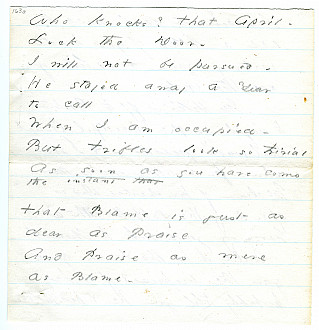 1320
Who knocks? That April.
Lock the Door.
I will not be pursued.
He stayed away a Year
to call
When I am occupied.
But trifles look so trivial
As soon as you have come
the instant that
That Blame is just as
dear as Praise
And Praise as mere
as Blame.